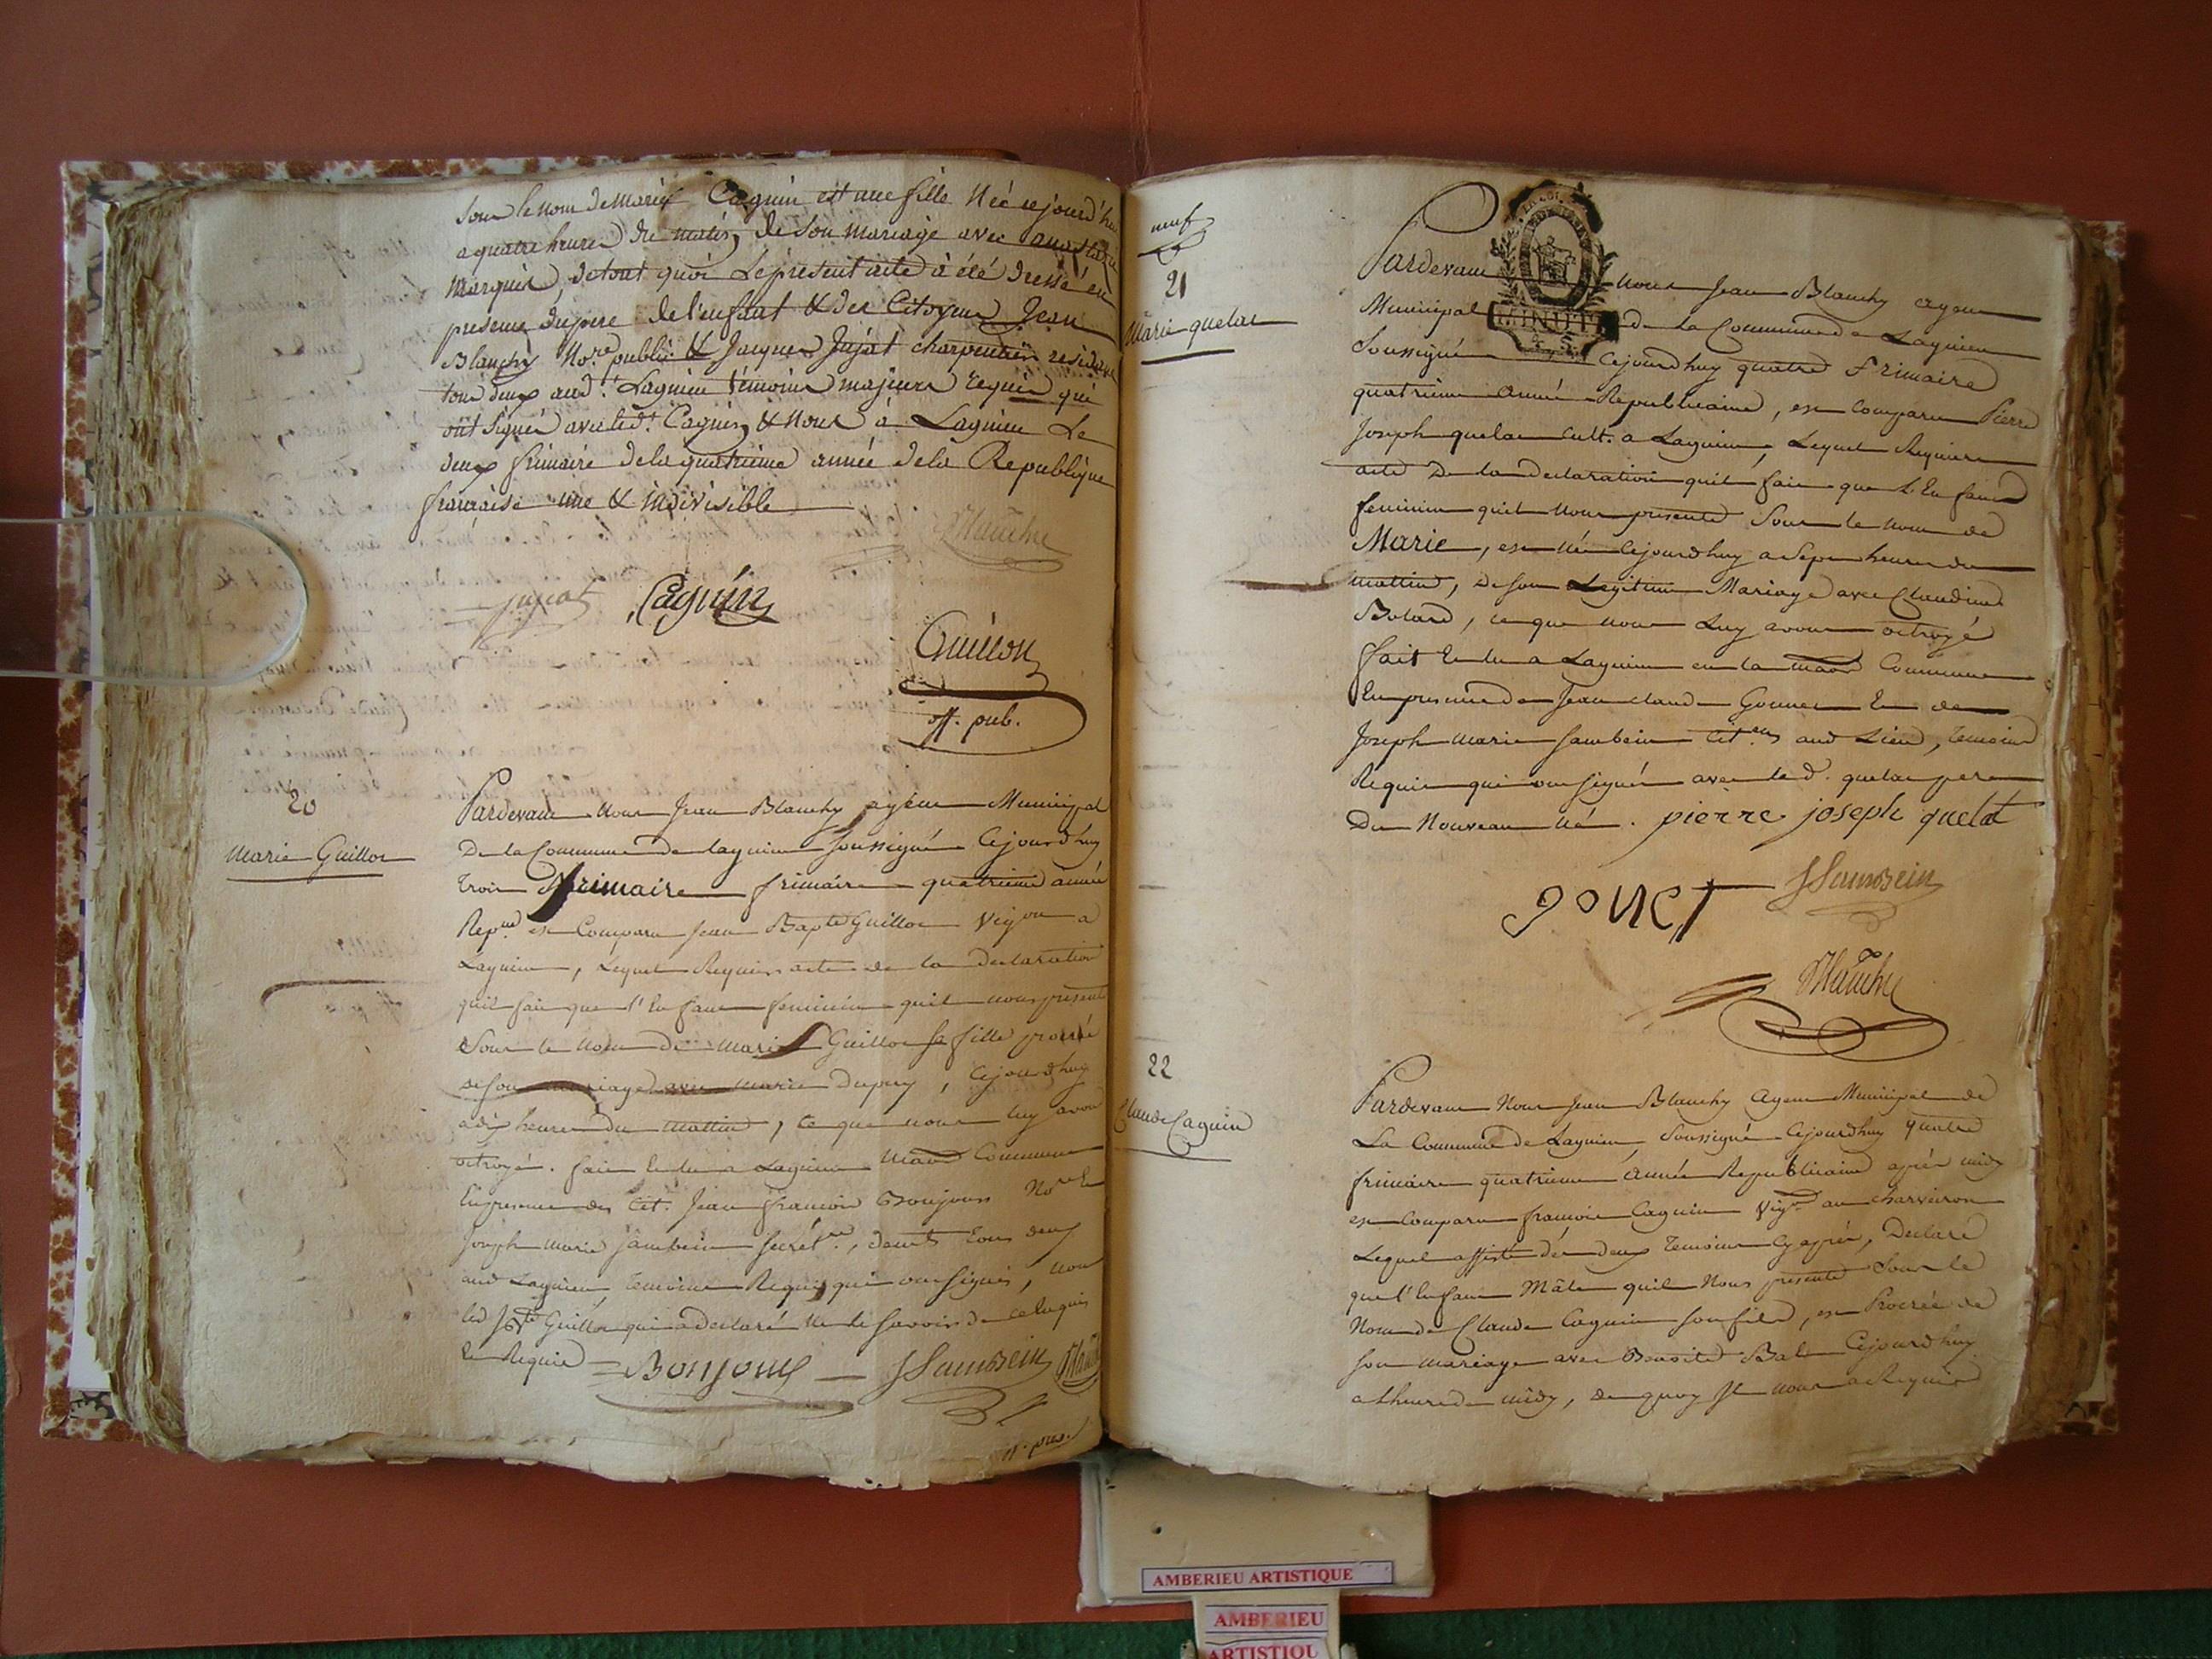 sous le nom de Marie Caguin est une fille Née cejourd'hui
a quatre heures du matin, de son mariage avec anastazie
Marquis, de tout quoi Le present acte à été dressé en
presence du pere de l'enfant & des Citoyens Jean
Blanchy No.re public & Jacques Jujat charpentier residant
tous deux aud. Lagnieu témoins majeurs requis qui
ont signé avec led.t Caguin & Nous à Lagnieu Le
deux frimaire de la quatrieme année de la Republique
française une & indivisible
Blanchy
Jujat Caguin
Guillon
off. pub.
20
Marie Guillot
Pardevant Nous Jean Blanchy agent Municipal
De la Commune de Lagnieu soussigné Cejourd'huy
trois frimaire frimaire quatrieme année
Rep.ne est Comparu Jean Bapte Guillot Vigon a
Lagnieu, Lequel Requier acte de la declaration
quil fait que l'Enfant feminin quil nous presente
Sous le nom de marie Guillot sa fille procréé
de son mariage avec Marie Dupuy, Cejourdhuy
a dix heures du mattin, Ce que nous luy avons
octroyé. fait Et lu a Lagnieu Maon Commune
En presence des Cit. Jean francois Bonjour No.re Et
Joseph Marie Jambein secret.re, demt tous deux
aud Lagnieu, temoins Requis qui ont signés, non
led J Bte Guillot qui a declaré ne le savoir de ce Enquis
Et Requis = Bonjour — JJambein Blanchy
neuf
21
Marie quelat
Pardevant nous Jean Blanchy agent
MINUTE
Municipal de La Commune de Lagnieu
Soussigné Cejourdhuy quatre Frimaire
quatrieme année Republicaine, est Comparu Pierre
Joseph quelat cult. a Lagnieu, Lequel Requiert
acte De la declaration quil fait que L'Enfant
feminin quil Nous presente Sous le nom de
Marie, est née Cejourdhuy a Sept heures du
mattin, de son Legitime Mariage avec Claudine
Bolard, ce que nous Luy avons octroyé
fait Et lu a Lagnieu en la maon Commune
En presence de Jean claude Gonnet Et de
Joseph marie Jambein Cit.ens aud Lieu, temoins
Requis qui ont signés avec le d. quelat pere
Du Nouveau né. pierre joseph quelat
JJambein
gonet
Blanchy
22
Claude Caguin
Pardevant Nous Jean Blanchy Agent Municipal de
La Commune de Lagnieu, Soussigné Cejourdhuy quatre
frimaire quatrieme Année Republicaine après midy
est Comparu françois Caguin Vig.n au charveiron
Lequel assisté des deux temoins Cy après, Declare
que l'Enfant Mâle quil Nous presente Sous le
Nom de Claude Caguin son fils, est Procrée de
son mariage avec Benoite Bal Cejourdhuy
a Lheure de midy, de quoy Il nous a Requis
AMBERIEU ARTISTIQUE
AMBERIEU
ARTISTIQU